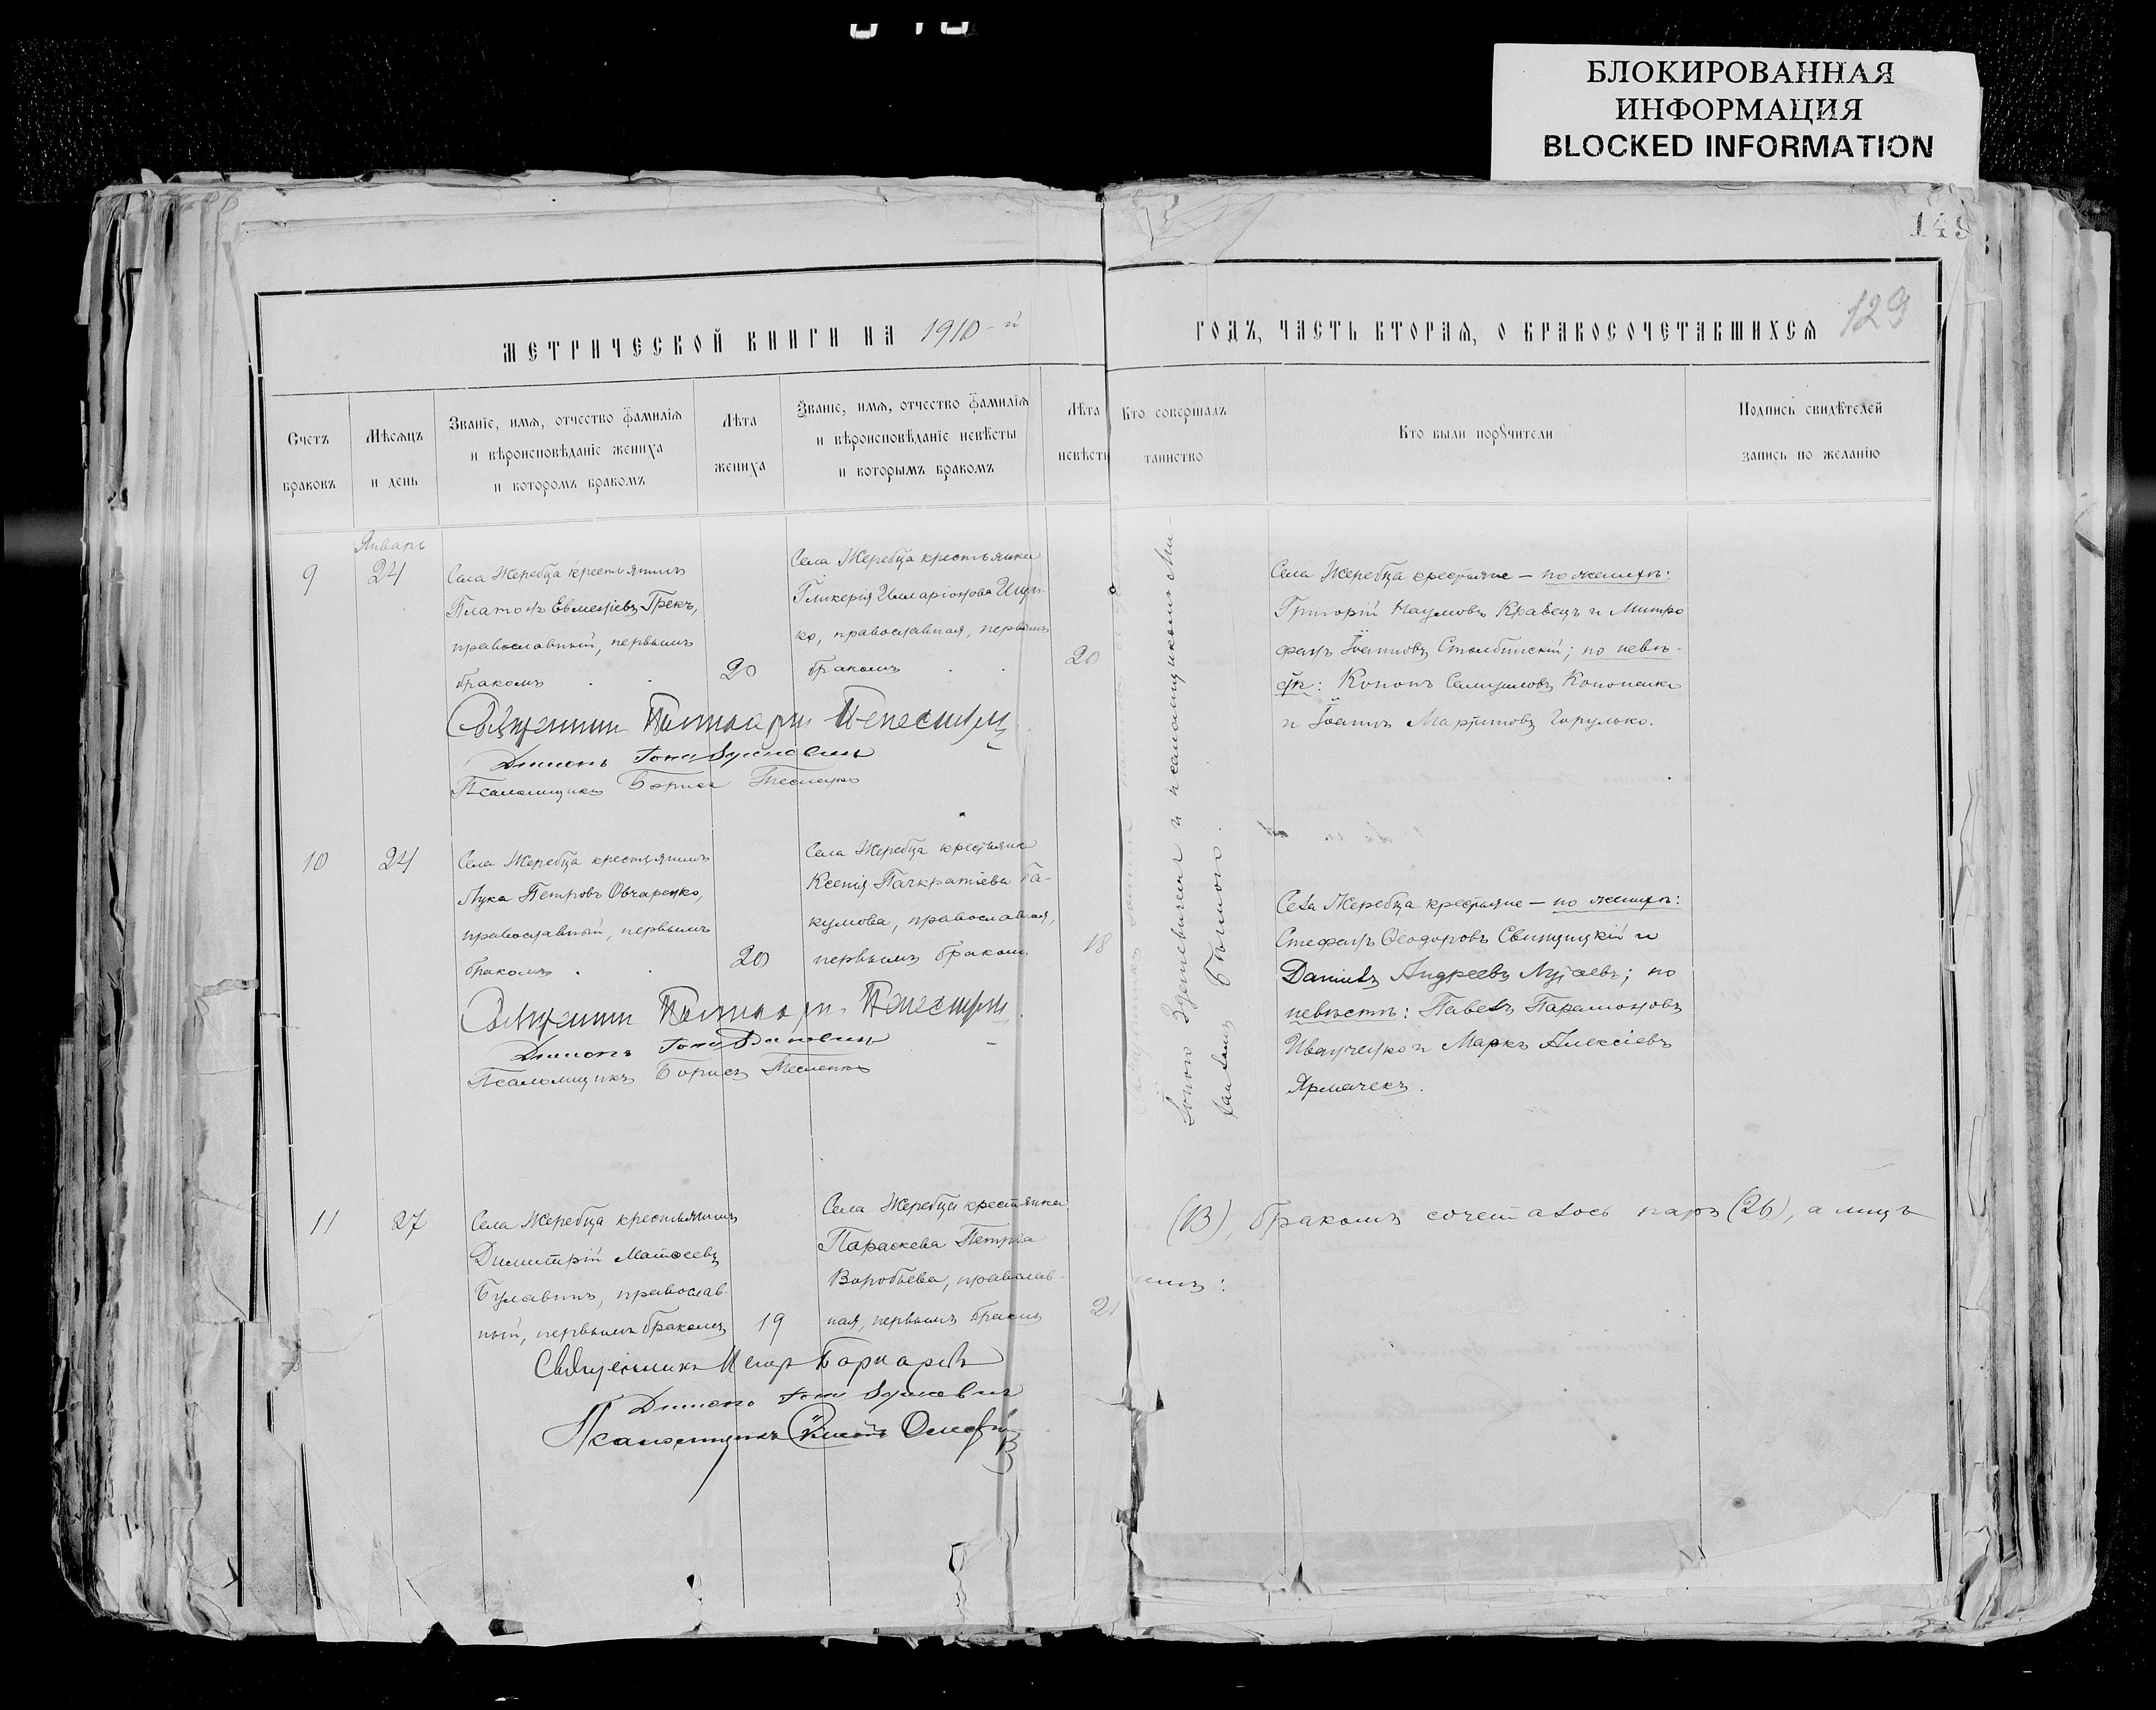 БЛОКИРОВАННАЯ
ИНФОРМАЦИЯ
BLOCKED INFORMATION
149
129
МЕТРИЧЕСКОЙ КНИГИ НА 1910-й
ГОДЪ, ЧАСТЬ ВТОРАЯ, О БРАКОСОЧЕТАВШИХСЯ
Счетъ
браковъ
Мѣсяцъ
и день
Званіе, имя, отчество фамилія
и вѣроисповѣданіе жениха
и которомъ бракомъ
Лѣта
жениха
Званіе, имя, отчество фамилія
и вѣроисповѣданіе невѣсты
и которымъ бракомъ
Лѣта
невѣсты
Кто совершалъ
таинство
Кто были порꙋчители
Подпись свидѣтелей
запись по желанію
Январь
9
24
Села Жеребца крестьянинъ
Платонъ Евменіевъ Грекъ,
православный, первымъ
бракомъ
20
Села Жеребца крестьянка
Гликерія Илларіонова
ко, православная, первымъ
бракомъ
20
Села Жеребца крестьяне — по женихѣ:
Григорій Наумовъ Кравецъ и Митро
фанъ Іоанновъ Столбинскій; по невѣ-
стѣ: Кононъ Самуиловъ Кононенко
и Іоаннъ Мартиновъ Горулько.
Священникъ
Діаконъ
Псаломщикъ Борисъ Тесленко
10
24
Села Жеребца крестьянинъ
Лука Петровъ Овчаренко,
православный, первымъ
бракомъ
20
Села Жеребца крестьянка
Ксенія Панкратіева Ба-
кумова, православная,
первымъ бракомъ
18
Села Жеребца крестьяне — по женихѣ:
Стефанъ Ѳеодоровъ Свинцицкій и
Даніилъ Андреевъ; по
невѣстѣ: Павелъ Парамоновъ
Иванченко и Маркъ Алексіевъ
Ярмачекъ.
Священникъ
Діаконъ
Псаломщикъ Борисъ Тесленко
11
27
Села Жеребца крестьянинъ
Димитрій Матѳеевъ
Булавинъ, православ-
ный, первымъ бракомъ
19
Села Жеребца крестьянка
Параскева Петрова
Воробьева, православ-
ная, первымъ бракомъ
21
Священникъ
Діаконъ
Псаломщикъ
и псаломщикомъ Ми-
(В), бракомъ сочеталось паръ (26), а лицъ